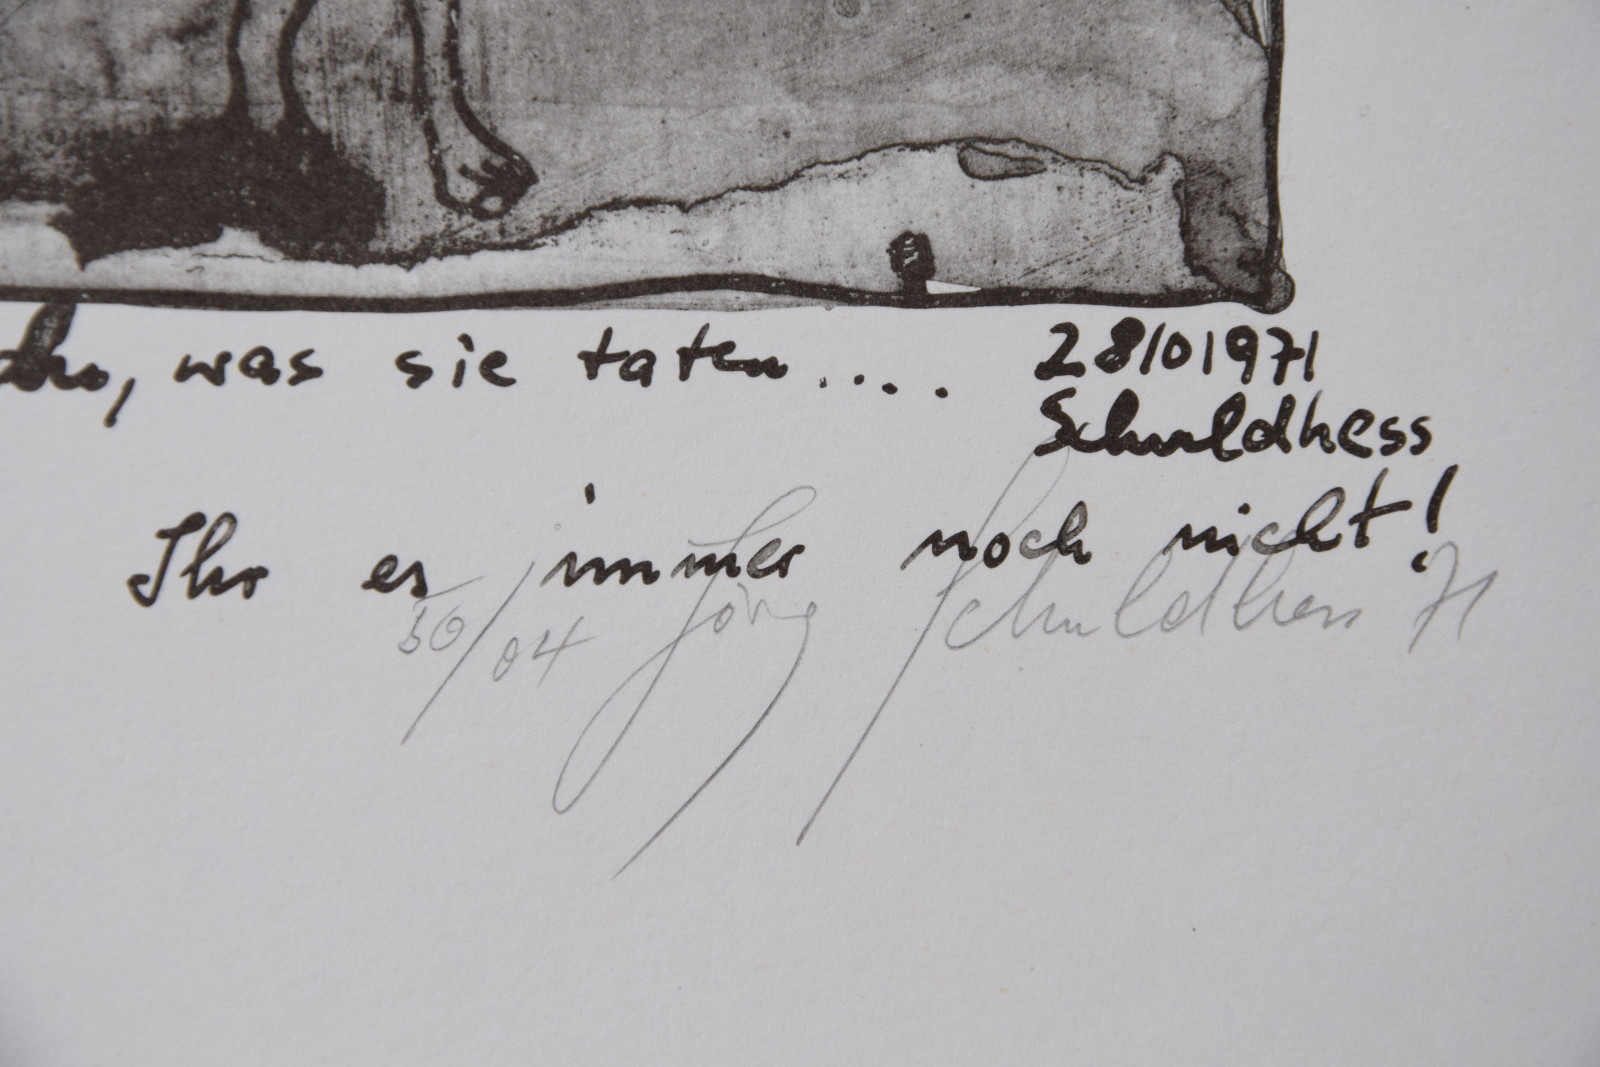 was sie taten.... 28/01971
Schuldhess
Ihr es immer noch nicht!
50/04 Jörg Schuldhess 71